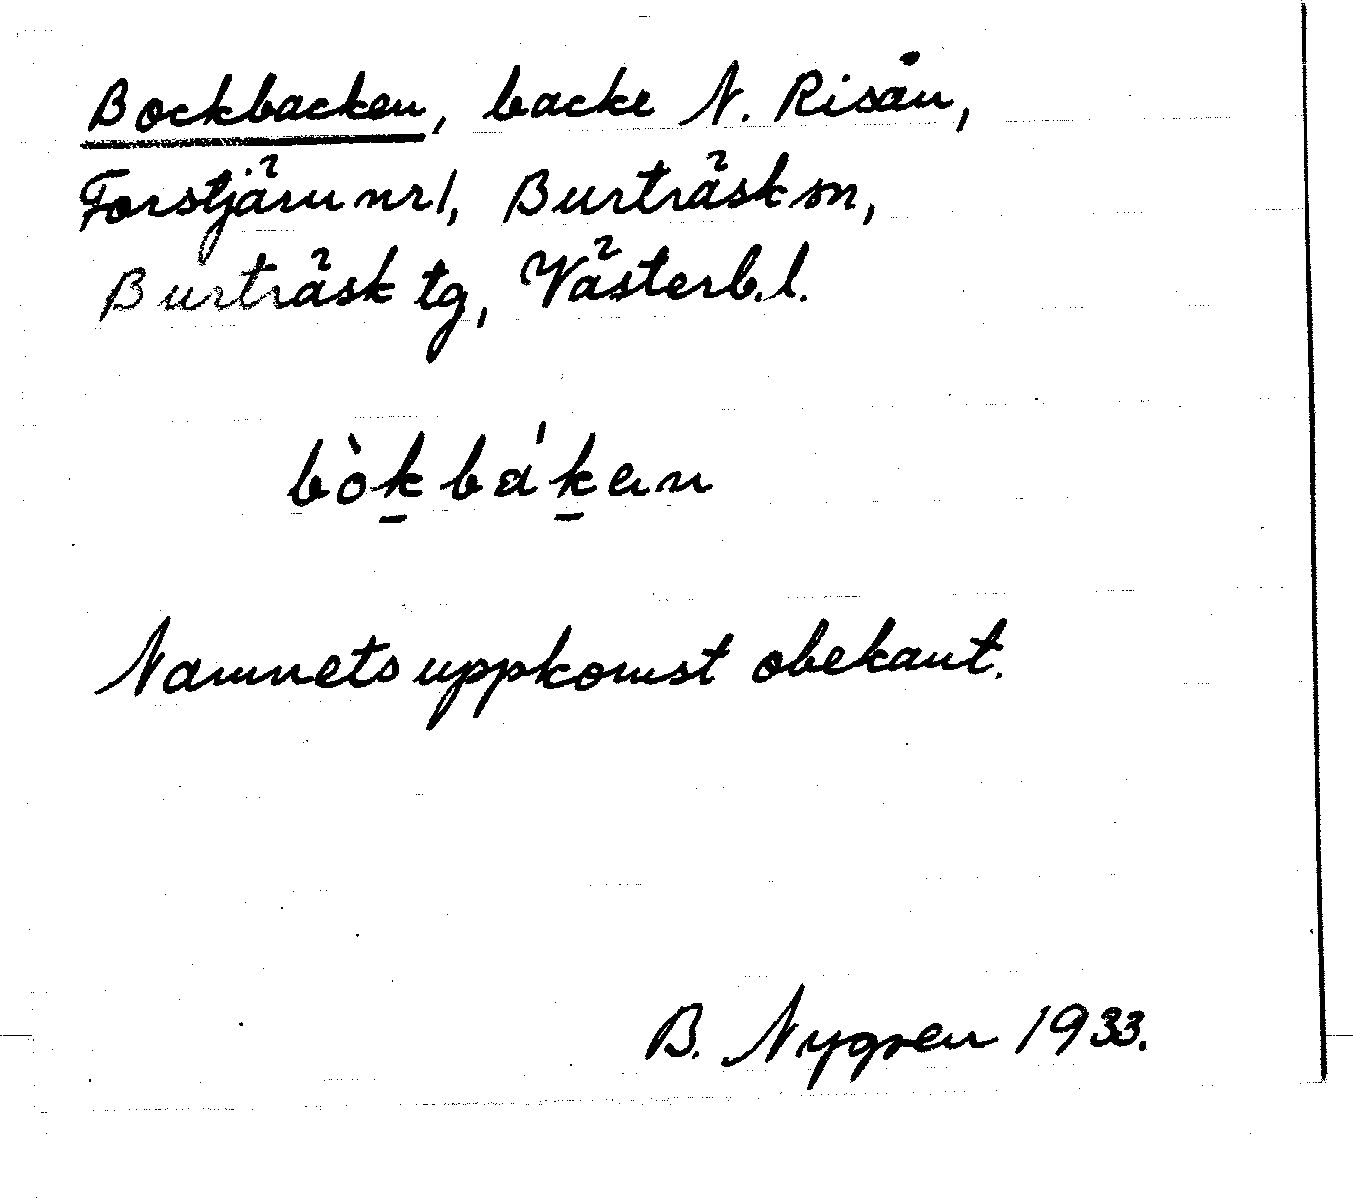 Bockbacken, backe N. Risån,
Forstjärn nr 1, Burträsk sn,
Burträsk tg, Västerb. l.
bòkbáken
Namnets uppkomst obekant.
B. Nygren 1933.